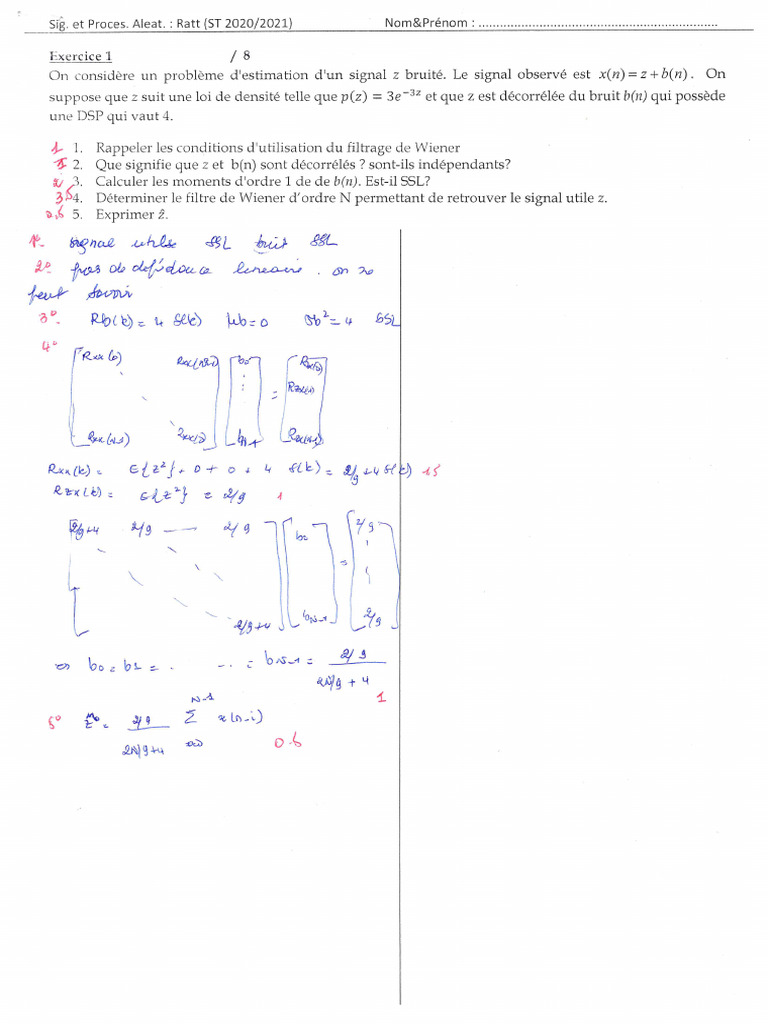 Sig. et Proces. Aleat. : Ratt (ST 2020/2021) Nom&Prénom : ......................................................................
Exercice 1 / 8
On considère un problème d'estimation d'un signal z bruité. Le signal observé est x(n) = z + b(n). On
suppose que z suit une loi de densité telle que p(z) = 3e^{-3z} et que z est décorrélée du bruit b(n) qui possède
une DSP qui vaut 4.
1 1. Rappeler les conditions d'utilisation du filtrage de Wiener
1 2. Que signifie que z et b(n) sont décorrélés ? sont-ils indépendants?
2 3. Calculer les moments d'ordre 1 de de b(n). Est-il SSL?
3,5 4. Déterminer le filtre de Wiener d'ordre N permettant de retrouver le signal utile z.
0,5 5. Exprimer ẑ.
1°- signal utile SSL bruit SSL
2° pas de linéaire. on ne
peut savoir
3°- Rb(k) = 4 δ(k) μb = 0 σb² = 4 SSL
4°
Rxx(0) Rxx(N-1) b0 Rzx(0)
Rzx(1)
Rxx(N-1) Rxx(0) bN-1 = Rzx(N-1)
Rxx(k) = E{z²} + 0 + 0 + 4 δ(k) = 2/9 + 4 δ(k) 1.5
Rzx(k) = E{z²} = 2/9 1
2/9+4 2/9 — 2/9 2/9
=
2/9+4 bN-1 2/9
⇔ b0 = b1 = . . . . = bN-1 = 2/9 / 2N/9 + 4
1
5° = 2/9 / 2N/9+4 Σ N-1 x(n-i)
0.5